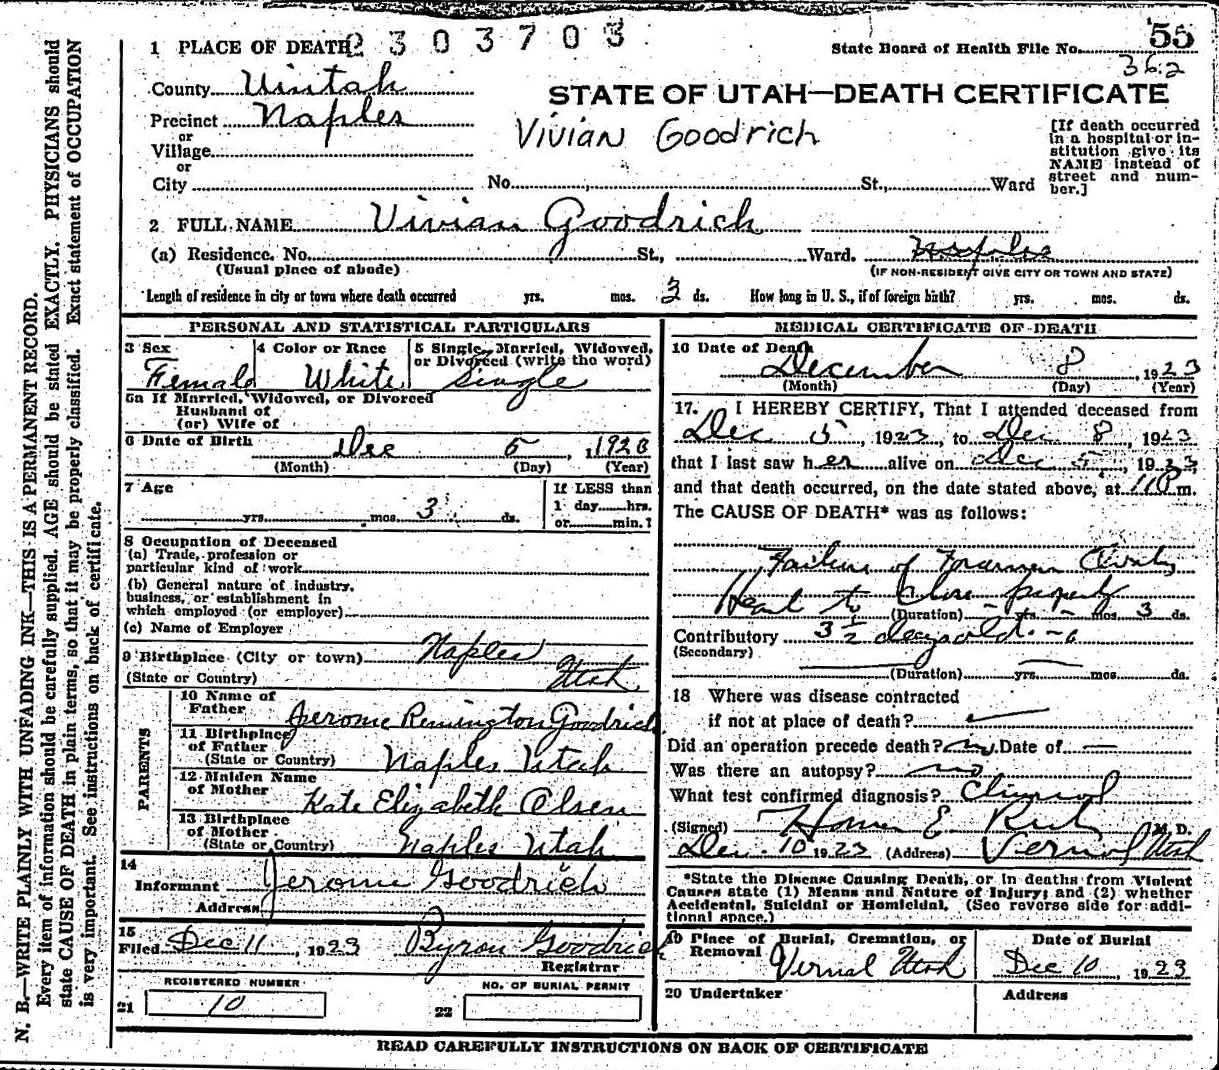 1 PLACE OF DEATH 2303703
State Board of Health File No. 55
362
County Uintah
STATE OF UTAH—DEATH CERTIFICATE
Precinct Naples
Vivian Goodrich
or
Village
or
City No. St., Ward
[If death occurred
in a hospital or in-
stitution give its
NAME instead of
street and num-
ber.]
2 FULL NAME Vivian Goodrich
(a) Residence. No. St., Ward. Naples
(Usual place of abode) (IF NON-RESIDENT GIVE CITY OR TOWN AND STATE)
Length of residence in city or town where death occurred yrs. mos. 3 ds. How long in U. S., if of foreign birth? yrs. mos. ds.
PERSONAL AND STATISTICAL PARTICULARS
3 Sex 4 Color or Race 5 Single, Married, Widowed,
or Divorced (write the word)
Female White Single
5a If Married, Widowed, or Divorced
Husband of
(or) Wife of
6 Date of Birth Dec 5, 1923
(Month) (Day) (Year)
7 Age If LESS than
yrs. mos. 3 ds. 1 day hrs.
or min.?
8 Occupation of Deceased
(a) Trade, profession or
particular kind of work
(b) General nature of industry,
business, or establishment in
which employed (or employer)
(c) Name of Employer
9 Birthplace (City or town) Naples
(State or Country) Utah
PARENTS
10 Name of
Father Jerome Remington Goodrich
11 Birthplace
of Father
(State or Country) Naples Utah
12 Maiden Name
of Mother Kate Elizabeth Olsen
13 Birthplace
of Mother
(State or Country) Naples Utah
14
Informant Jerome Goodrich
Address
15
Filed Dec 11, 1923 Byron Goodrich
Registrar
REGISTERED NUMBER NO. OF BURIAL PERMIT
21 10 22
MEDICAL CERTIFICATE OF DEATH
16 Date of Death
December 8, 1923
(Month) (Day) (Year)
17. I HEREBY CERTIFY, That I attended deceased from
Dec 5, 1923, to Dec 8, 1923
that I last saw her alive on Dec 5, 1923
and that death occurred, on the date stated above, at 11 P m.
The CAUSE OF DEATH* was as follows:
Failure of Foramen Ovale
Heart to Close properly
(Duration) - yrs - mos 3 ds.
Contributory 3½ days old.
(Secondary)
(Duration) yrs. mos. ds.
18 Where was disease contracted
if not at place of death?
Did an operation precede death? no. Date of —
Was there an autopsy? no
What test confirmed diagnosis? Clinical
(Signed) Homer E. Rich M. D.
Dec. 10 1923 (Address) Vernal Utah
*State the Disease Causing Death, or in deaths from Violent
Causes state (1) Means and Nature of Injury; and (2) whether
Accidental, Suicidal or Homicidal. (See reverse side for addi-
tional space.)
19 Place of Burial, Cremation, or
Removal Vernal Utah
Date of Burial
Dec 10, 1923
20 Undertaker Address
READ CAREFULLY INSTRUCTIONS ON BACK OF CERTIFICATE
N. B.—WRITE PLAINLY WITH UNFADING INK—THIS IS A PERMANENT RECORD.
Every item of information should be carefully supplied. AGE should be stated EXACTLY. PHYSICIANS should
state CAUSE OF DEATH in plain terms, so that it may be properly classified. Exact statement of OCCUPATION
is very important. See instructions on back of certificate.